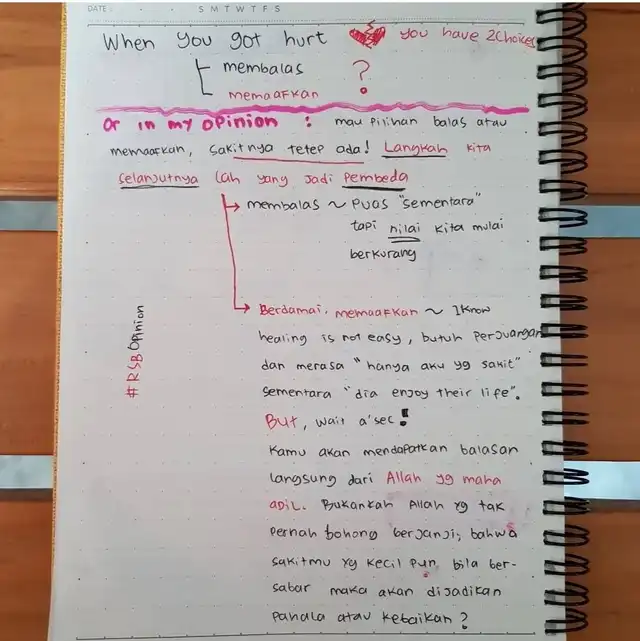 DATE: . . S M T W T F S
When you got hurt you have 2choices
membalas ?
memaafkan
or in my opinion : mau pilihan balas atau
memaafkan, sakitnya tetep ada! Langkah kita
selanjutnya lah yang jadi pembeda
membalas ~ puas "sementara"
tapi nilai kita mulai
berkurang
Berdamai, memaafkan ~ I know
healing is not easy, butuh perjuangan
dan merasa "hanya aku yg sakit"
sementara "dia enjoy their life".
But, wait a'sec!
Kamu akan mendapatkan balasan
langsung dari Allah yg maha
adil. Bukankah Allah yg tak
pernah bohong berjanji; bahwa
sakitmu yg kecil pun, bila ber-
sabar maka akan dijadikan
pahala atau kebaikan ?
#RSBOpinion